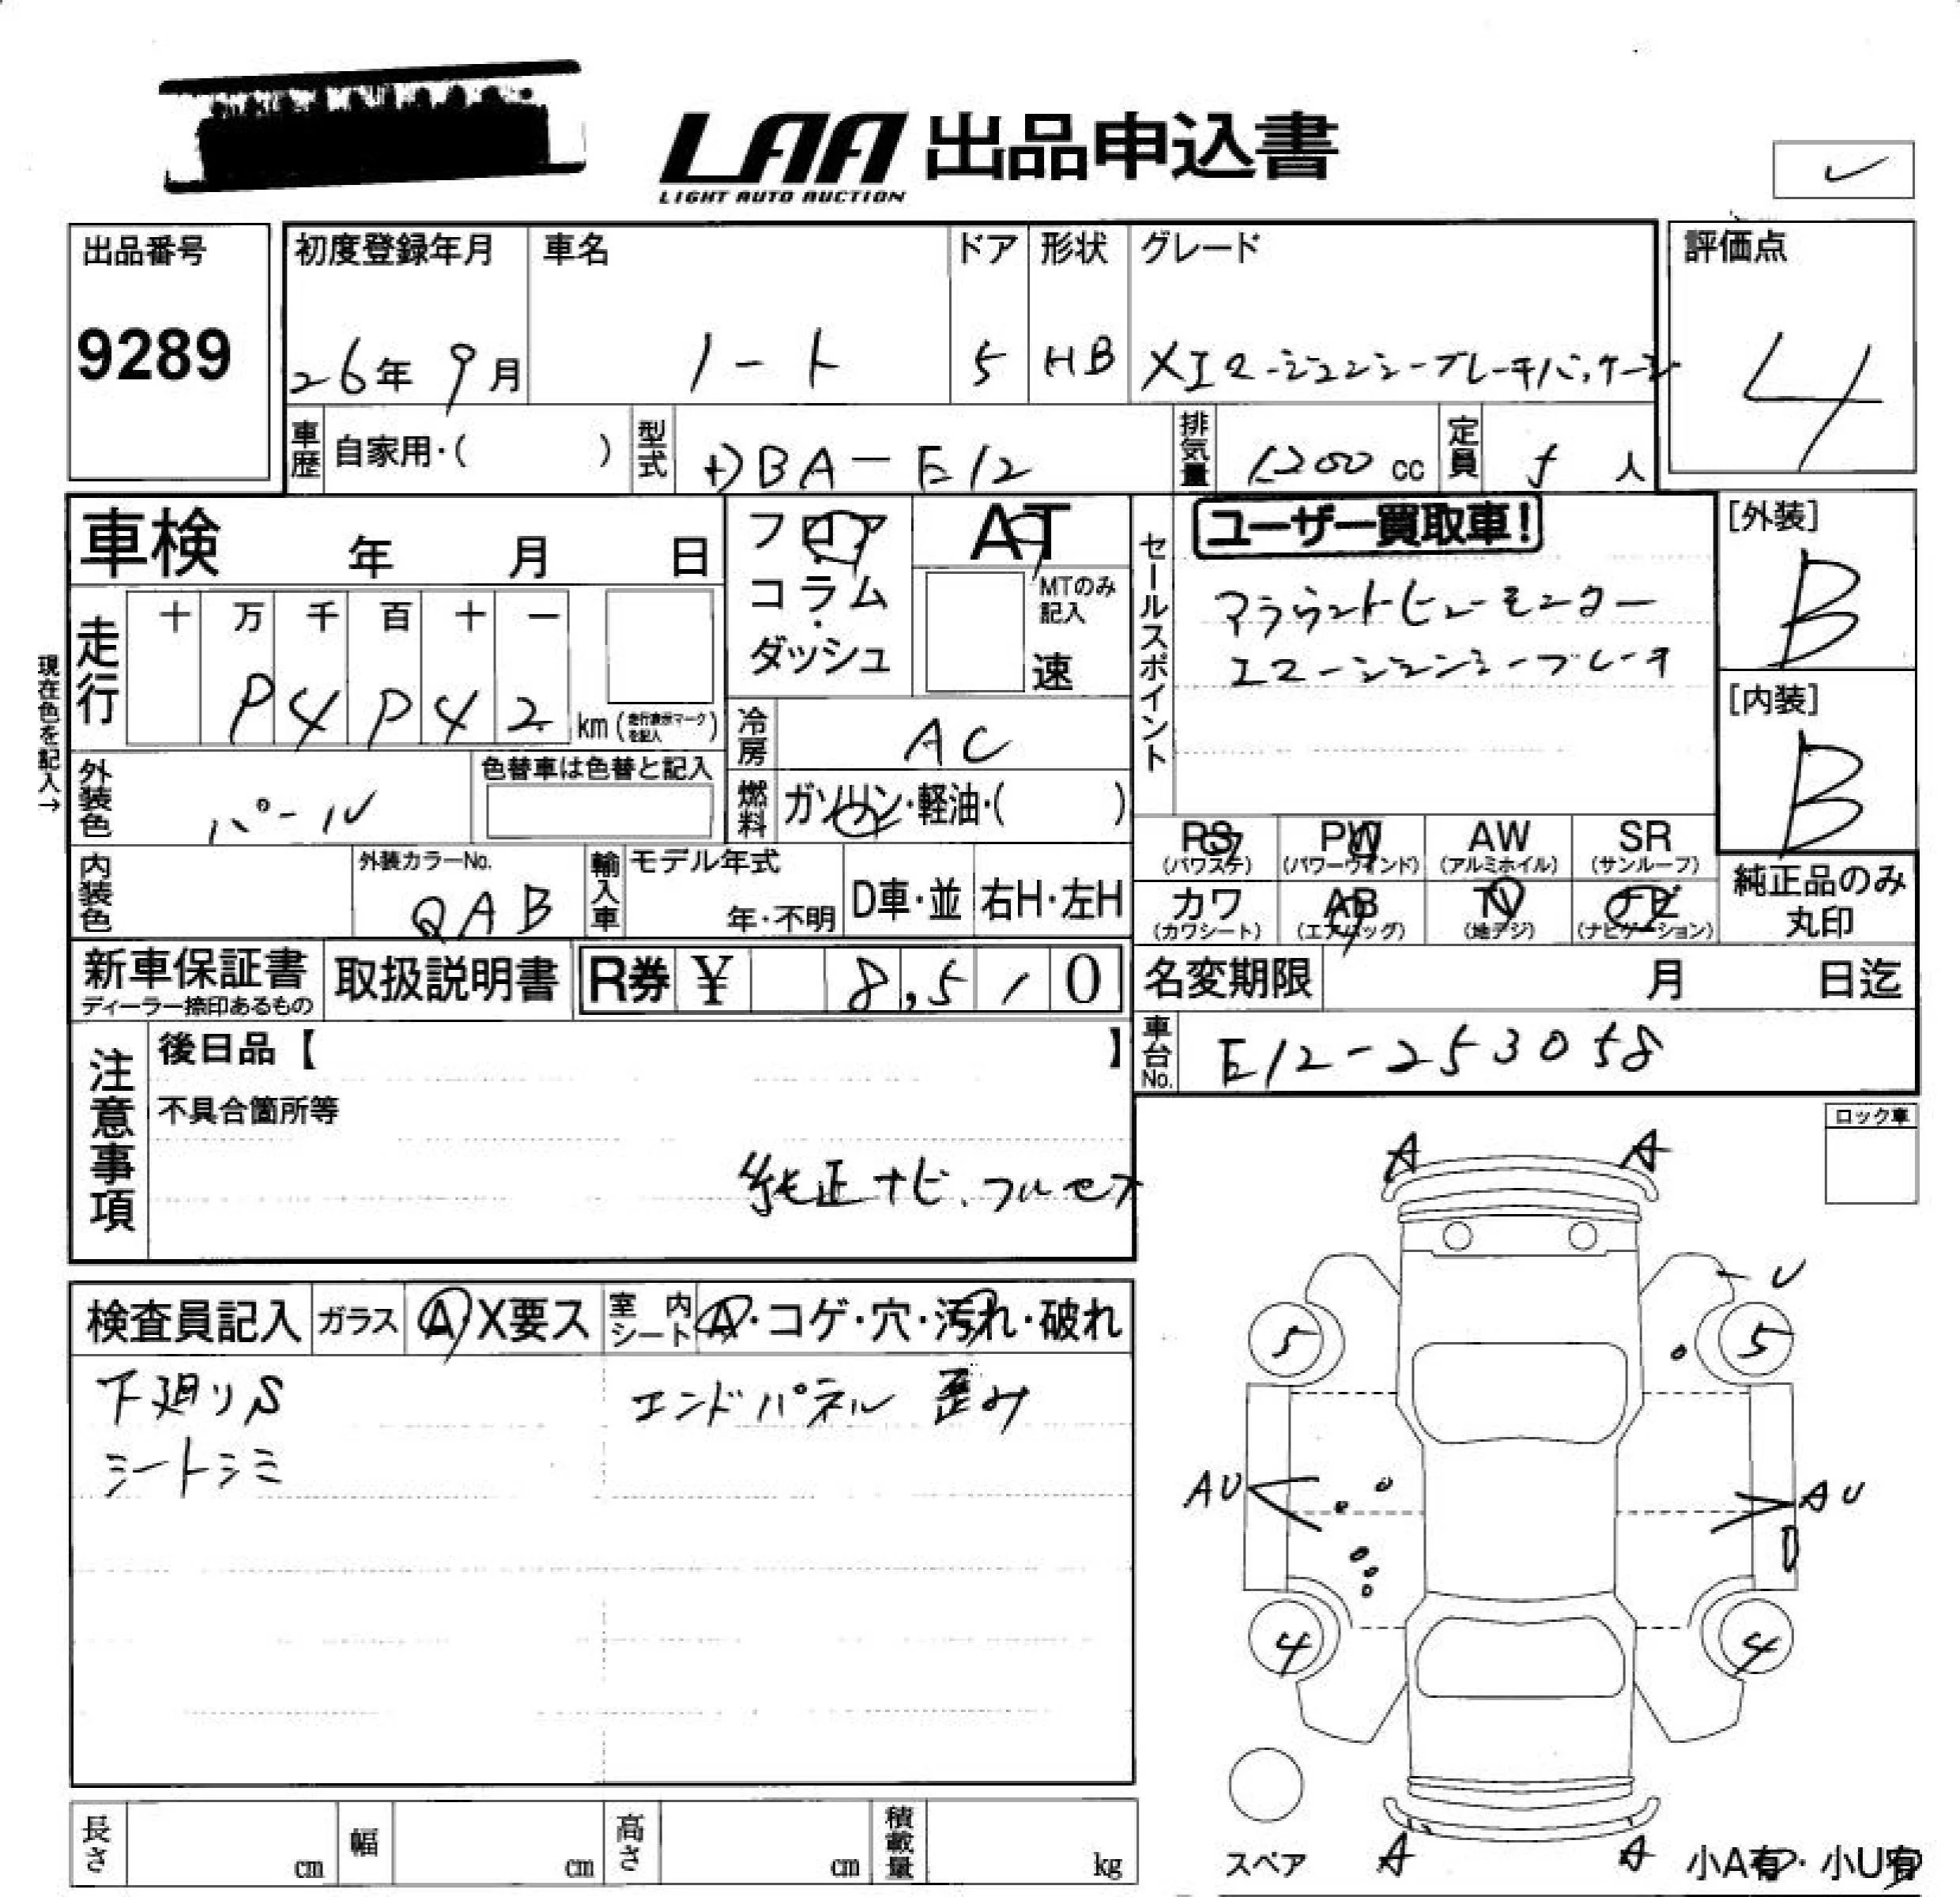 LAA 出品申込書
LIGHT AUTO AUCTION
出品番号
9289
初度登録年月
26年 9月
車名
ノート
ドア
5
形状
HB
グレード
XエマージェンシーブレーキパッケージJ
評価点
4
車歴
自家用・( )
型式
DBA-E12
排気量
1200 cc
定員
5 人
車検 年 月 日
フロア
コラム
・
ダッシュ
AT
MTのみ
記入
速
セールスポイント
ユーザー買取車!
アラウンドビューモニター
エマージェンシーブレーキ
[外装]
B
[内装]
B
現在色を記入→
走行
十 万 千 百 十 一
P 4 P 4 2
km (走行表示マークを記入)
冷房
AC
外装色
パール
色替車は色替と記入
燃料
ガソリン・軽油・( )
PS
(パワステ)
PW
(パワーウィンド)
AW
(アルミホイル)
SR
(サンルーフ)
カワ
(カワシート)
AB
(エアバッグ)
TV
(地デジ)
ナビ
(ナビゲーション)
純正品のみ
丸印
内装色
外装カラーNo.
QAB
輸入車
モデル年式
年・不明
D車・並
右H・左H
新車保証書
ディーラー捺印あるもの
取扱説明書
R券 ¥ 8,510
名変期限 月 日迄
車台No.
E12-253058
注意事項
後日品【 】
不具合箇所等
純正ナビ、フルセグ
ロック車
検査員記入
ガラス
A・X要ス
室内シート
A・コゲ・穴・汚れ・破れ
下廻りS
シートシミ
エンドパネル 歪み
A A
U
5 5
AU AU
4 4
スペア
A A
小A有・小U有
長さ cm
幅 cm
高さ cm
積載量 kg